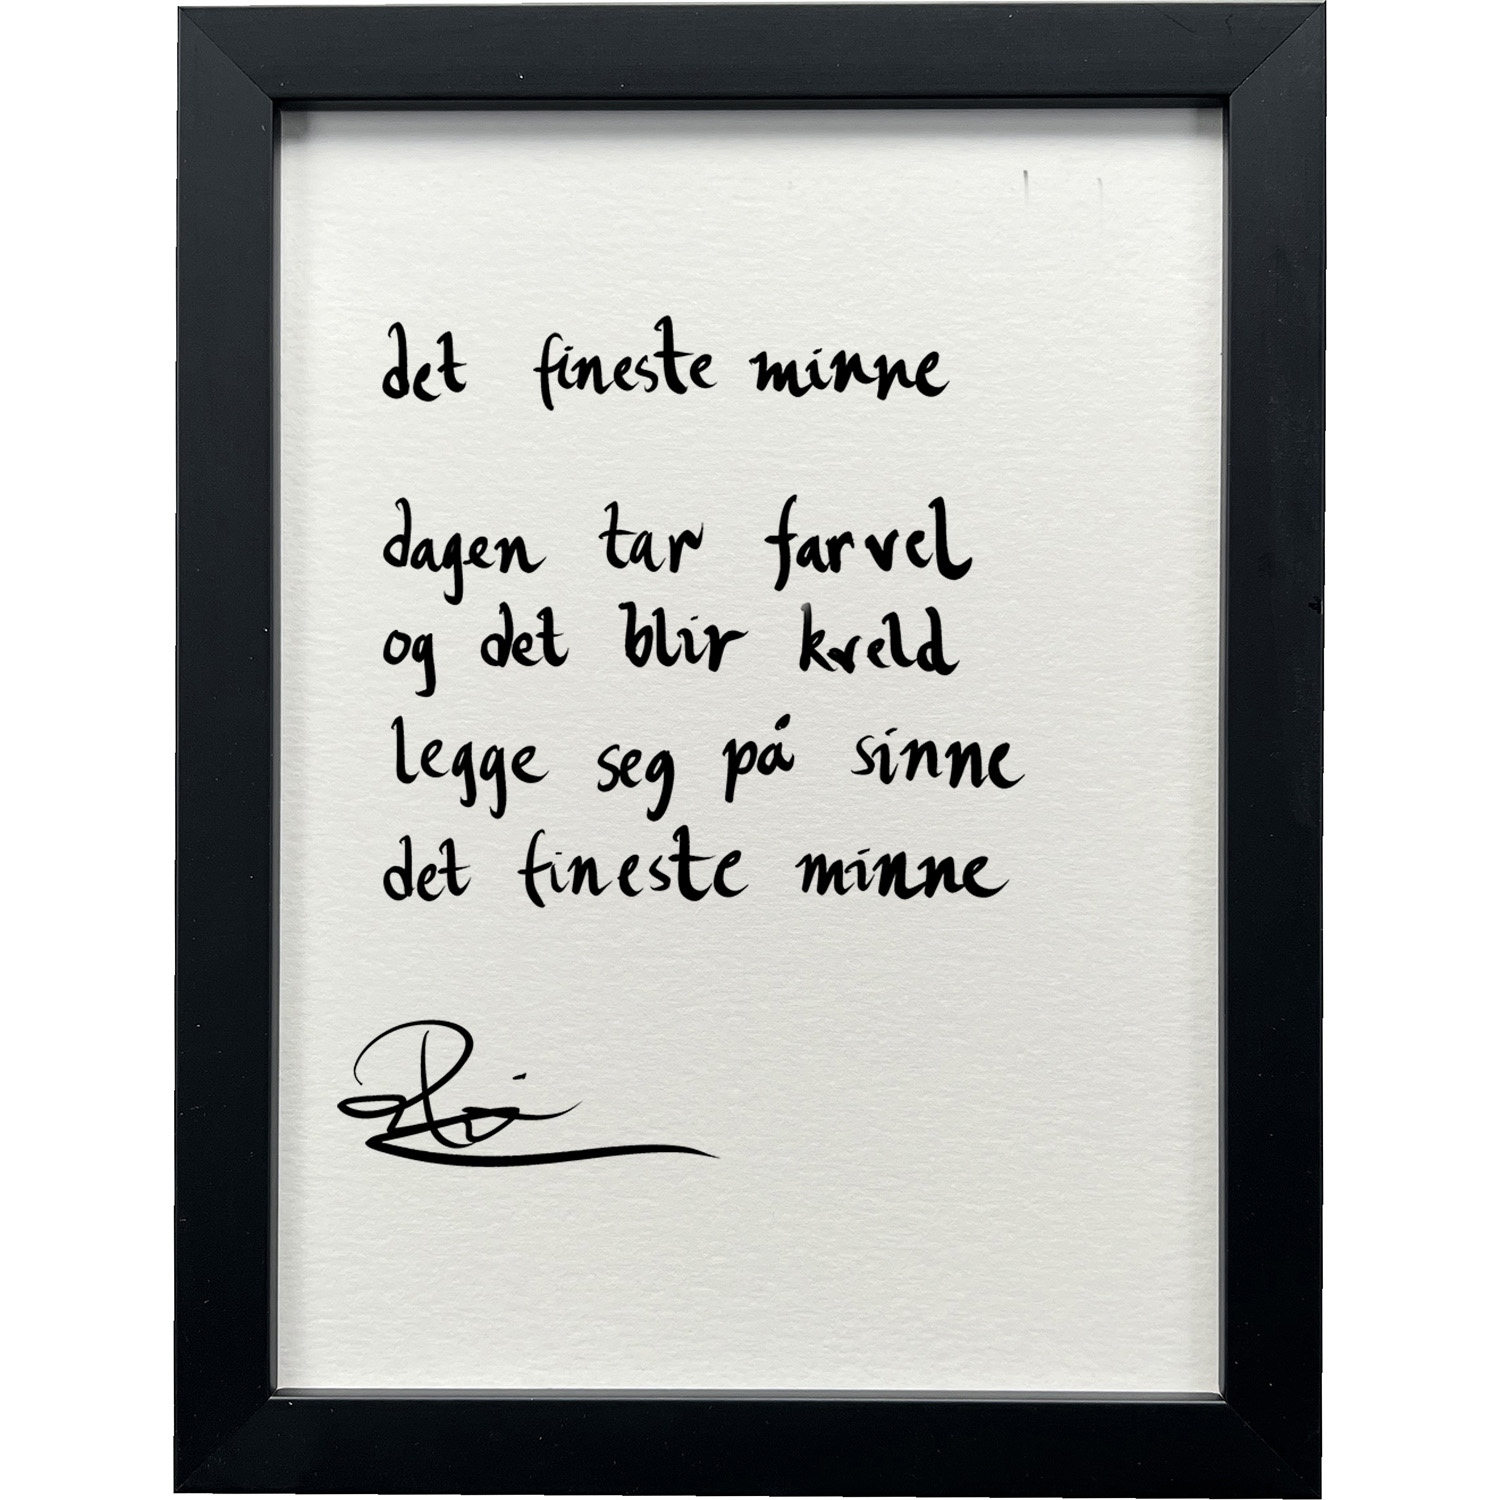 det fineste minne
dagen tar farvel
og det blir kveld
legge seg på sinne
det fineste minne